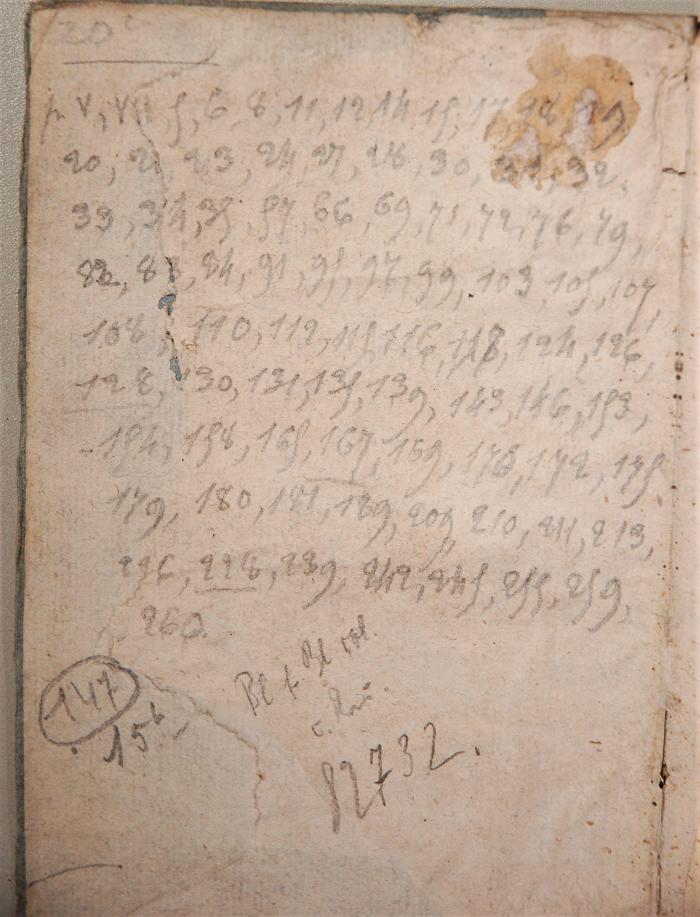 20
p. V, VII 5, 6 8, 11, 12, 14, 15, 17, 18, 19
20, 21, 23, 24, 27, 28, 30, 32.
33, 34, 35, 57, 66, 69, 71, 72, 76, 79,
82, 83, 84, 91, 95, 97, 99, 103, 105, 107,
108, 110, 112, 115, 116, 118, 124, 126,
128, 130, 131, 135, 139, 143, 146, 153,
154, 158, 165, 167, 169, 176, 172, 175
179, 180, 181, 189, 209, 210, 211, 213,
228, 239, 242, 245, 255, 259,
260.
147
15
82732.